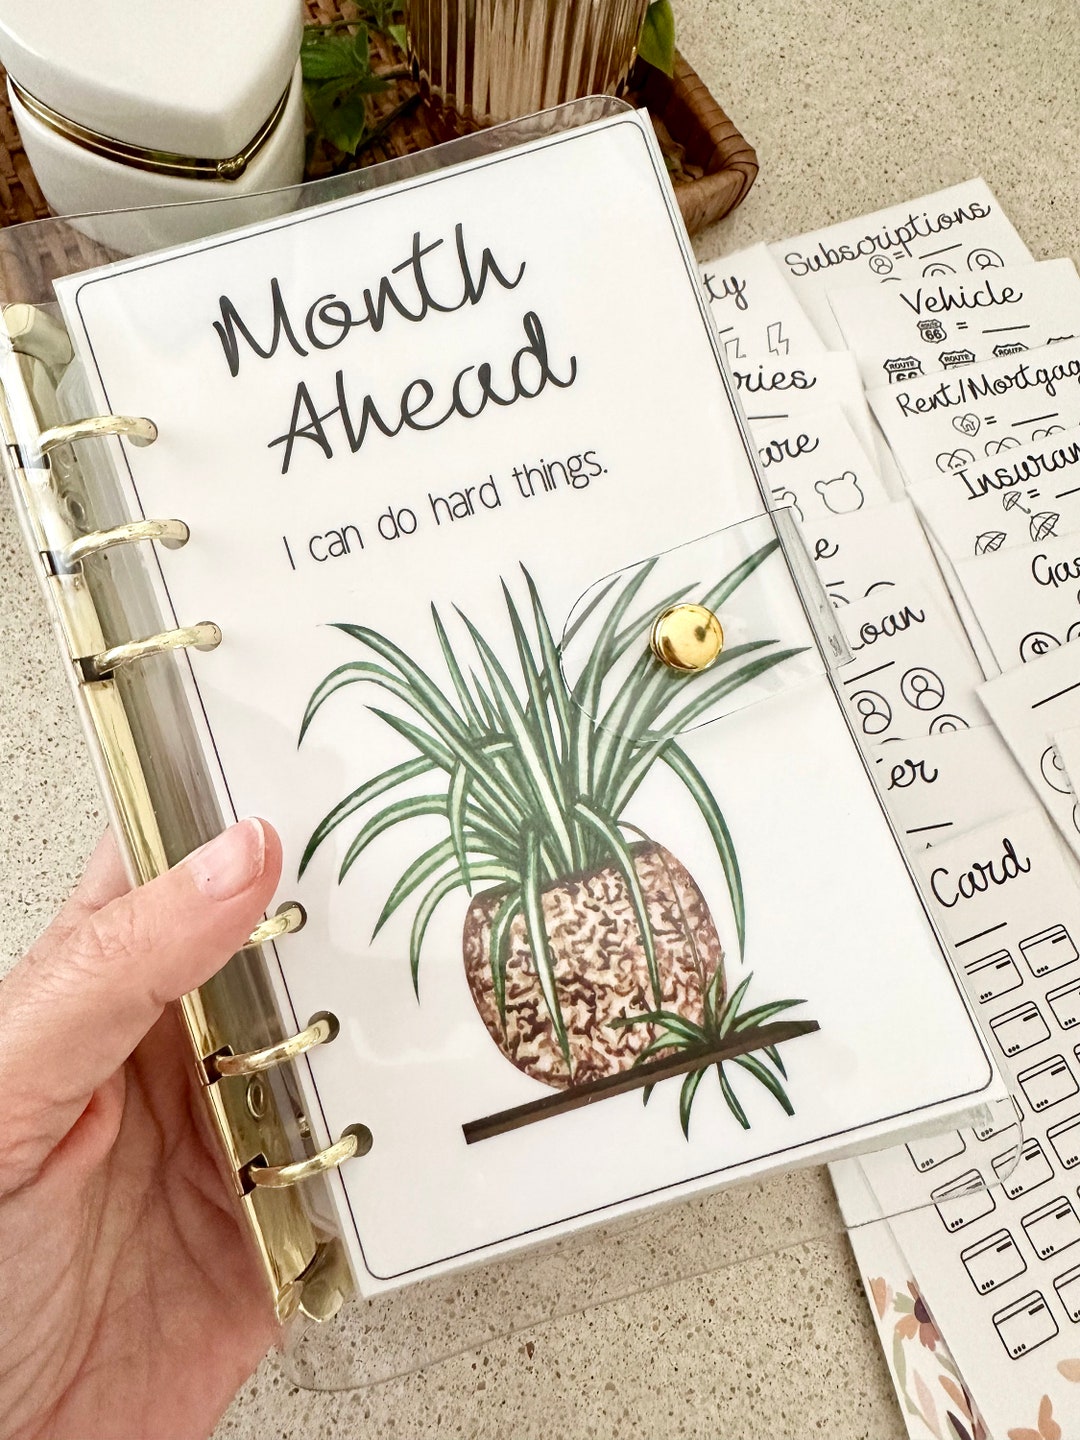 Month
Ahead
I can do hard things.
Subscriptions
=
Vehicle
ROUTE
66
=
ROUTE
66
ROUTE
ROUTE
Rent/Mortgag
=
Insuran
=
Gas
$
ty
ries
are
e
Loan
er
Card